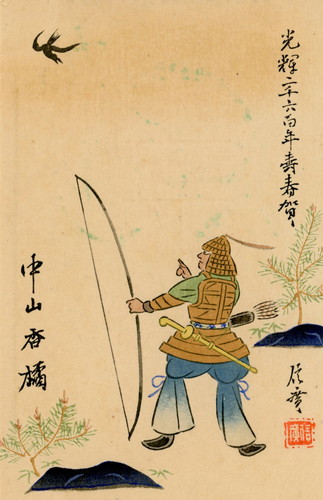 光輝二千六百年壽春賀
中山香橘
信廣